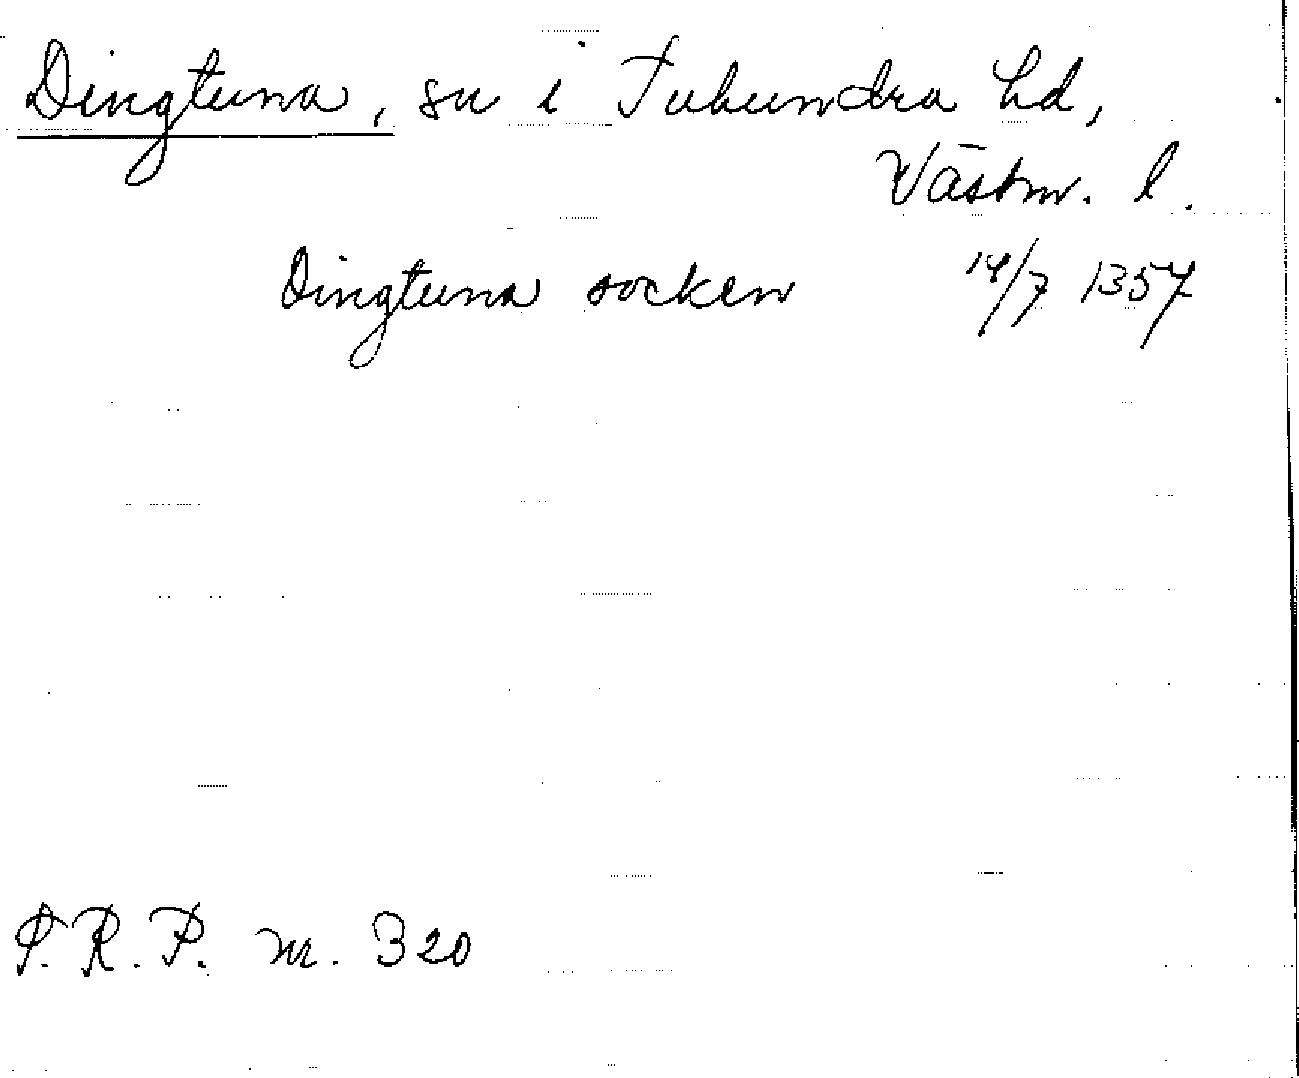 Dingtuna, sn i Tuhundra hd,
Västm. l.
Dingtuna socken 14/7 1357
S.R.P. nr. 320